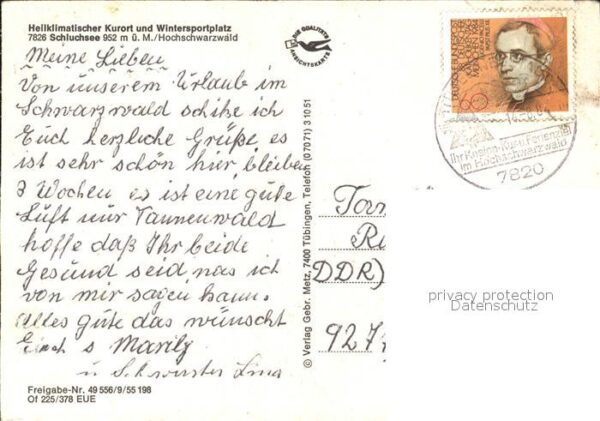 Heilklimatischer Kurort und Wintersportplatz
7826 Schluchsee 952 m ü. M./Hochschwarzwald
DIE QUALITÄTS
ANSICHTSKARTE
Meine Lieben
Von unserem Urlaub im
Schwarzwald schike ich
Euch herzliche Grüße, es
ist sehr schön hier, bleiben
3 Wochen, es ist eine gute
Luft nur Tannenwald
hoffe daß Ihr beide
Gesund seid nas ich
von mir sagen kann.
Alles gute das wünscht
Euch s Marily
u Schwester Lina
Freigabe-Nr. 49 556/9/55 198
Of 225/378 EUE
© Verlag Gebr. Metz, 7400 Tübingen, Telefon (0 70 71) 3 10 51
DEUTSCHE BUNDESPOST
60
Ferienziel
im Hochschwarzwald
7820
DDR)
927
privacy protection
Datenschutz